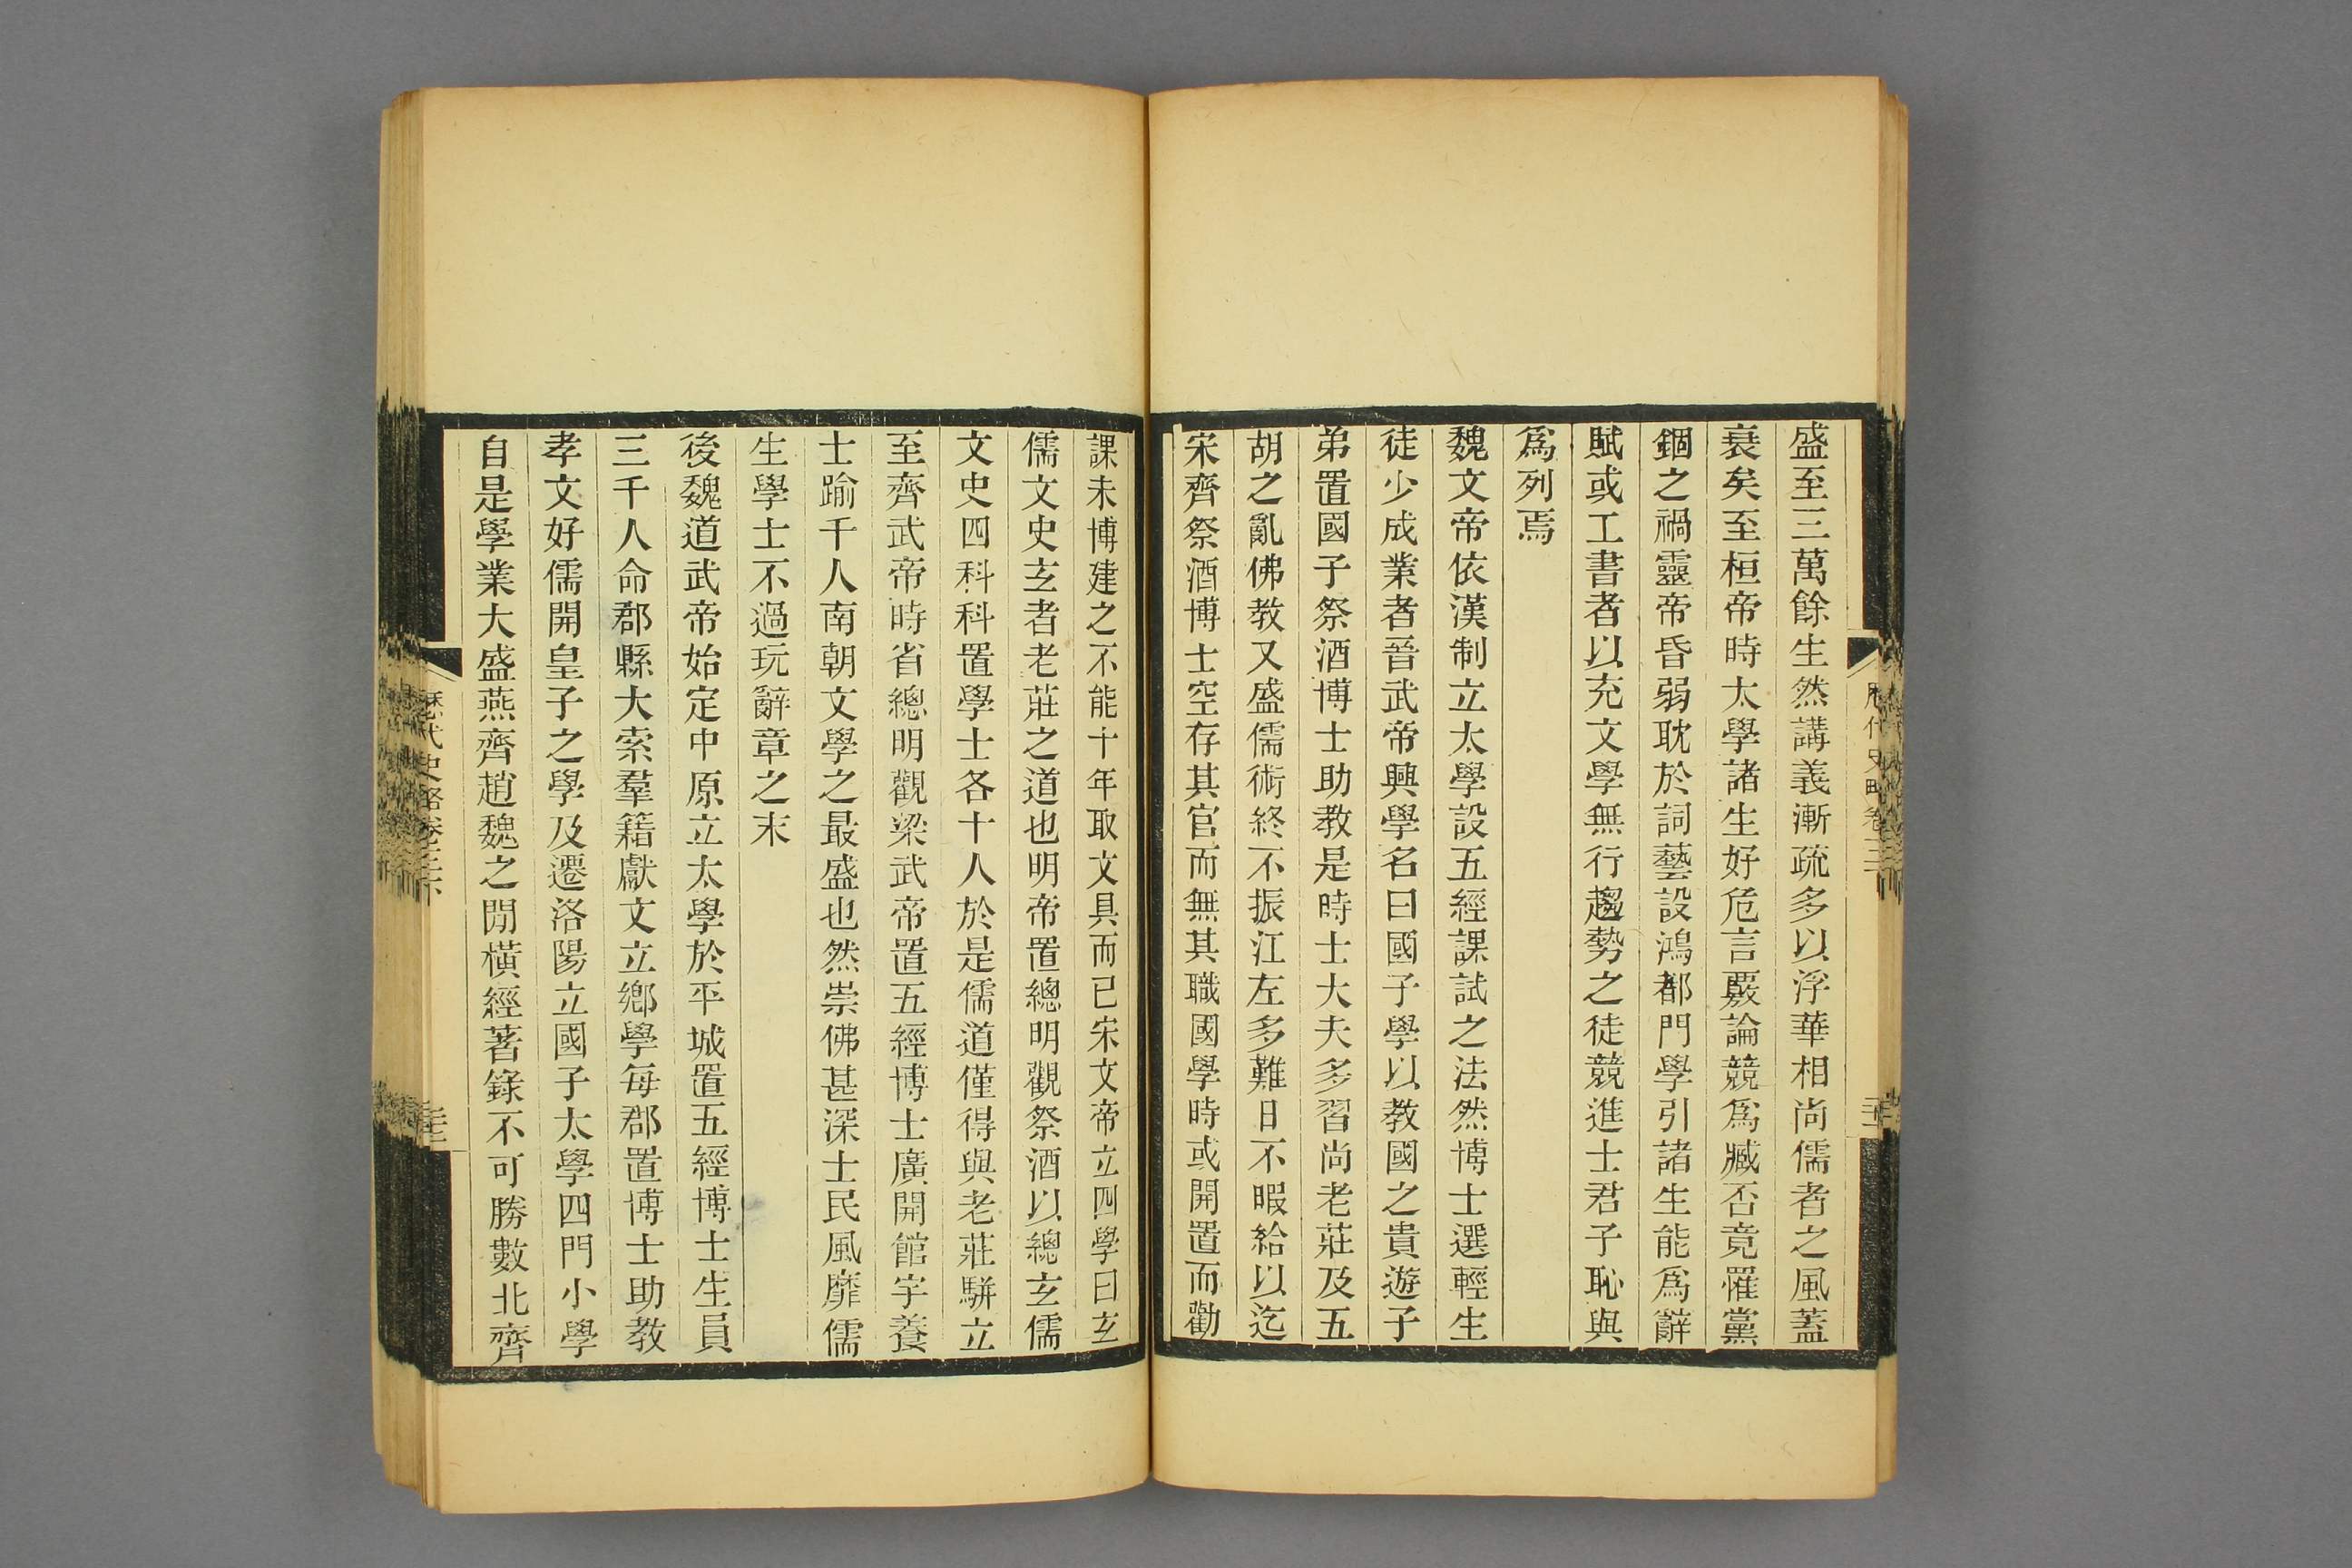 盛至三萬餘生然講義漸疏多以浮華相尚儒者之風蓋
衰矣至桓帝時太學諸生好危言覈論競爲臧否竟罹黨
錮之禍靈帝昏弱耽於詞藝設鴻都門學引諸生能爲辭
賦或工書者以充文學無行趨勢之徒競進士君子恥與
爲列焉
魏文帝依漢制立太學設五經課試之法然博士選輕生
徒少成業者晉武帝興學名曰國子學以教國之貴遊子
弟置國子祭酒博士助教是時士大夫多習尚老莊及五
胡之亂佛教又盛儒術終不振江左多難日不暇給以迄
宋齊祭酒博士空存其官而無其職國學時或開置而勸
課未博建之不能十年取文具而已宋文帝立四學曰玄
儒文史玄者老莊之道也明帝置總明觀祭酒以總玄儒
文史四科科置學士各十人於是儒道僅得與老莊駢立
至齊武帝時省總明觀梁武帝置五經博士廣開館宇養
士踰千人南朝文學之最盛也然崇佛甚深士民風靡儒
生學士不過玩辭章之末
後魏道武帝始定中原立太學於平城置五經博士生員
三千人命郡縣大索羣籍獻文立鄉學每郡置博士助教
孝文好儒開皇子之學及遷洛陽立國子太學四門小學
自是學業大盛燕齊趙魏之閒橫經著錄不可勝數北齊
歷代史略卷三下